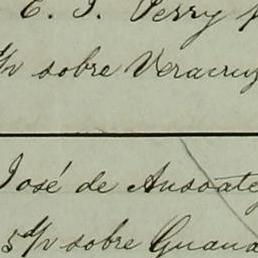 E. J. Perry
d/v sobre Veracruz
José de Ansoate
5 d/v sobre Guana